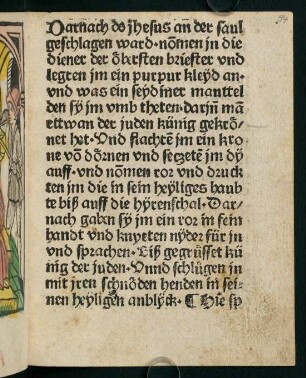 Darnach do ih̄esus an der saul
geschlagen ward · nōmen in die
diener der öb̄rsten briester vnd
legten jm ein purpur kleyd an ·
vnd was ein seydiner manttel
den sy jm vmb theten · darjn̄ mā
ettwan der juden künig gekrö⸗
net het · Vnd flachtē jm ein kro
ne vō dörnen vnd seczetē jm dy
auff · vnd nōmen ror vnd druck
ten jm die in sein heyliges haub
te biß auff die hyrenschal · Dar⸗
nach gaben sy jm ein ror in sein
handt vnd knyeten nyder für jn
vnd sprachen · Biß gegrüsset kü
nig der juden · Vnnd schlügen jn
mit jren schnöden henden in sei⸗
nen heyligen anblyck · ¶ Hie sp